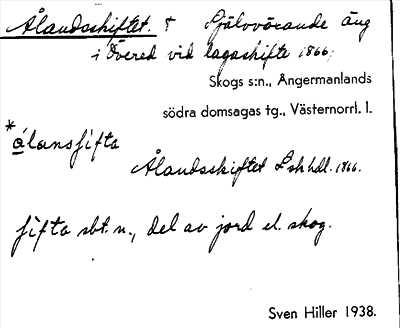 Ålandsskiftet. † Självvårande äng
i Övered vid lagaskifte 1866;
Skogs s:n., Ångermanlands
södra domsagas tg., Västernorrl. l.
*ålansſifta
Ålandsskiftet Lskhdl. 1866.
ſifta sbt. n., del av jord el. skog.
Sven Hiller 1938.